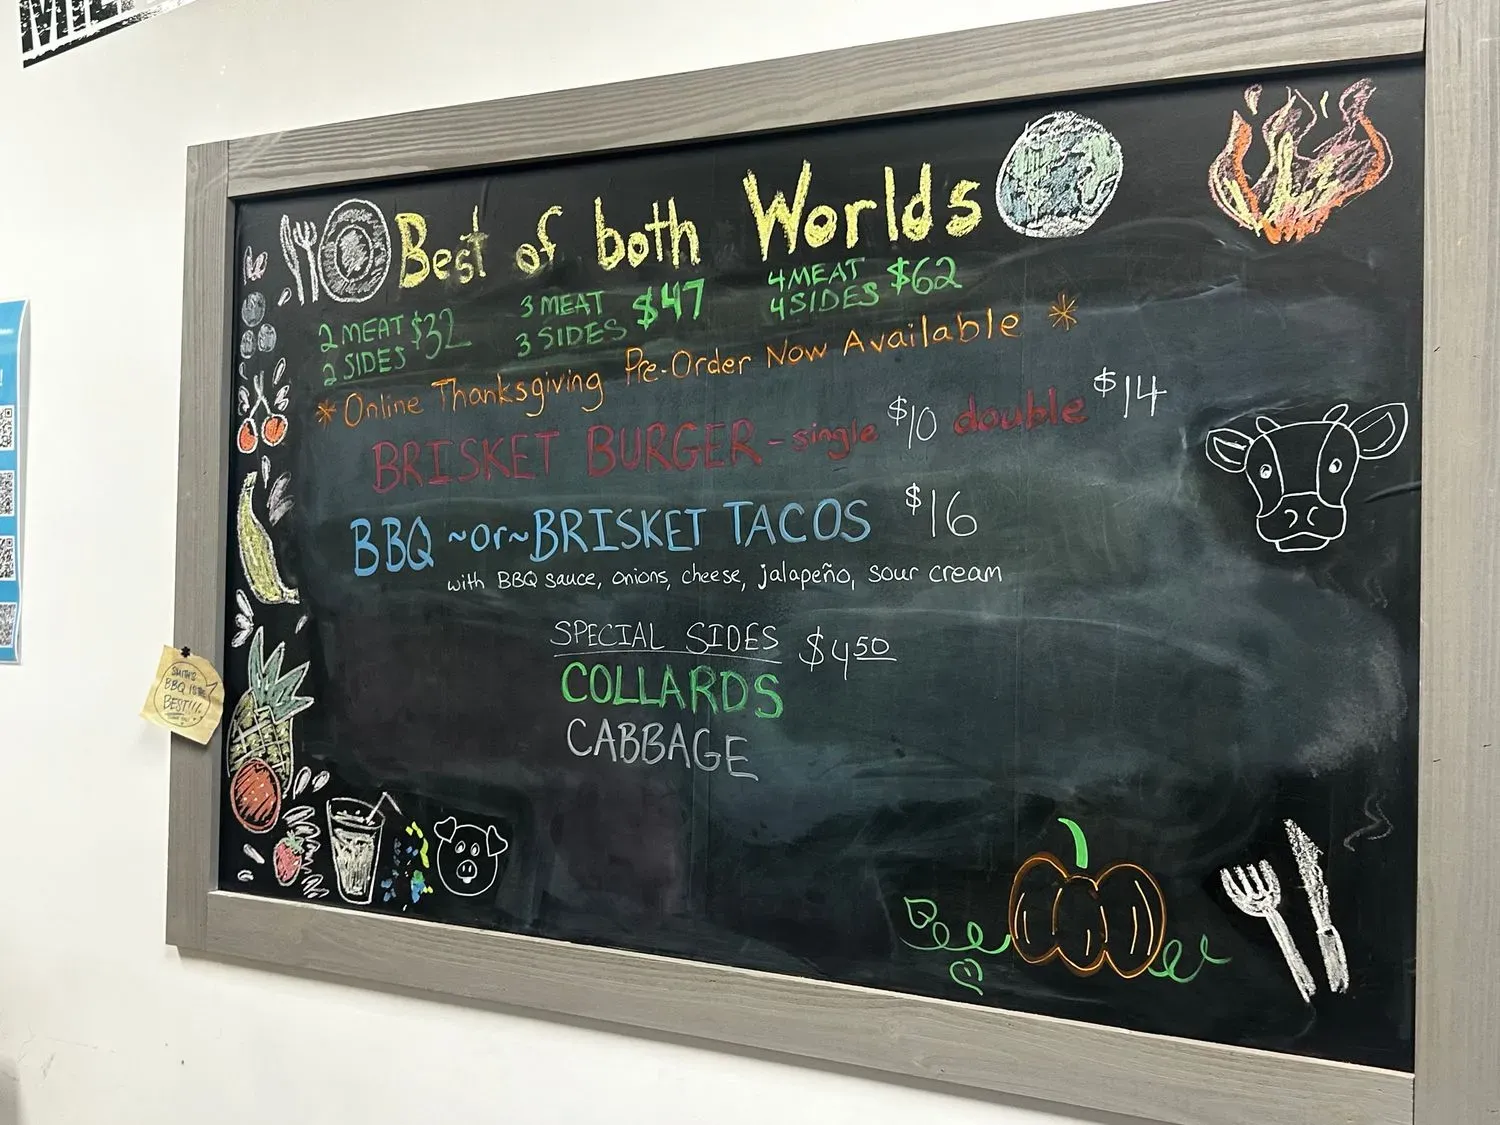 Best of both Worlds
2 MEAT
2 SIDES $32
3 MEAT
3 SIDES $47
4 MEAT
4 SIDES $62
* Online Thanksgiving Pre-Order Now Available *
BRISKET BURGER - single $10 double $14
BBQ ~or~ BRISKET TACOS $16
with BBQ sauce, onions, cheese, jalapeño, sour cream
SPECIAL SIDES $4.50
COLLARDS
CABBAGE
SMITH'S
BBQ IS THE
BEST!!!